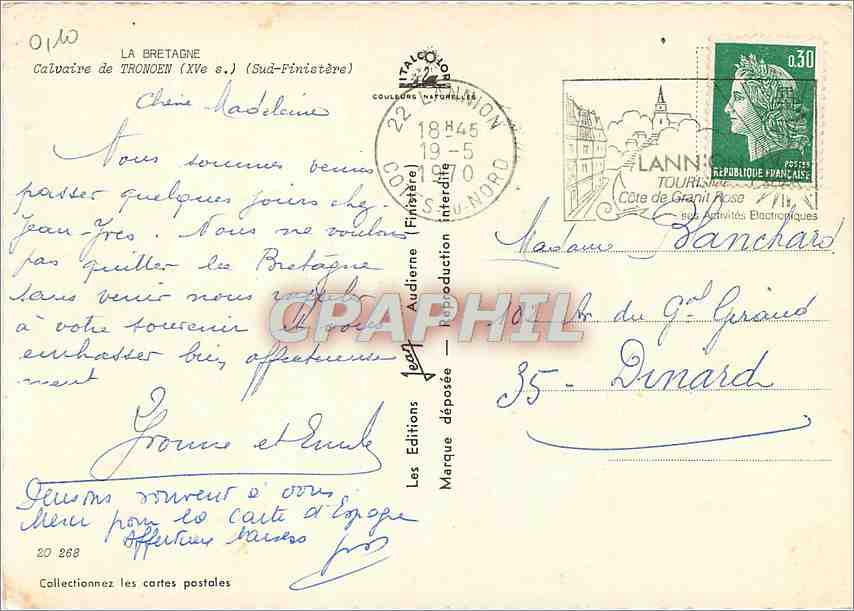 0,10
LA BRETAGNE
Calvaire de TRONOEN (XVe s.) (Sud-Finistère)
Chère Madeleine
Nous sommes venus
passer quelques jours chez
Jean-Yves. Nous ne voulons
pas quitter la Bretagne
sans venir nous rappeler
à votre souvenir et vous
embrasser bien affectueuse
ment
Yvonne et Emile
Pensons souvent à vous
Merci pour la carte d'Espagne
Affectueux baisers
20 268
Collectionnez les cartes postales
ITALCOLOR
COULEURS NATURELLES
Les Editions Jean Audierne (Finistère)
Marque déposée — Reproduction interdite
22 LANNION
18H45
19-5
1970
COTES-DU-NORD
LANNI
TOURISM
Côte de Granit Rose
ses Activités Electroniques
0,30
POSTES
REPUBLIQUE FRANÇAISE
Madame Blanchard
du Gal Giraud
35 - Dinard
CPARPHIL